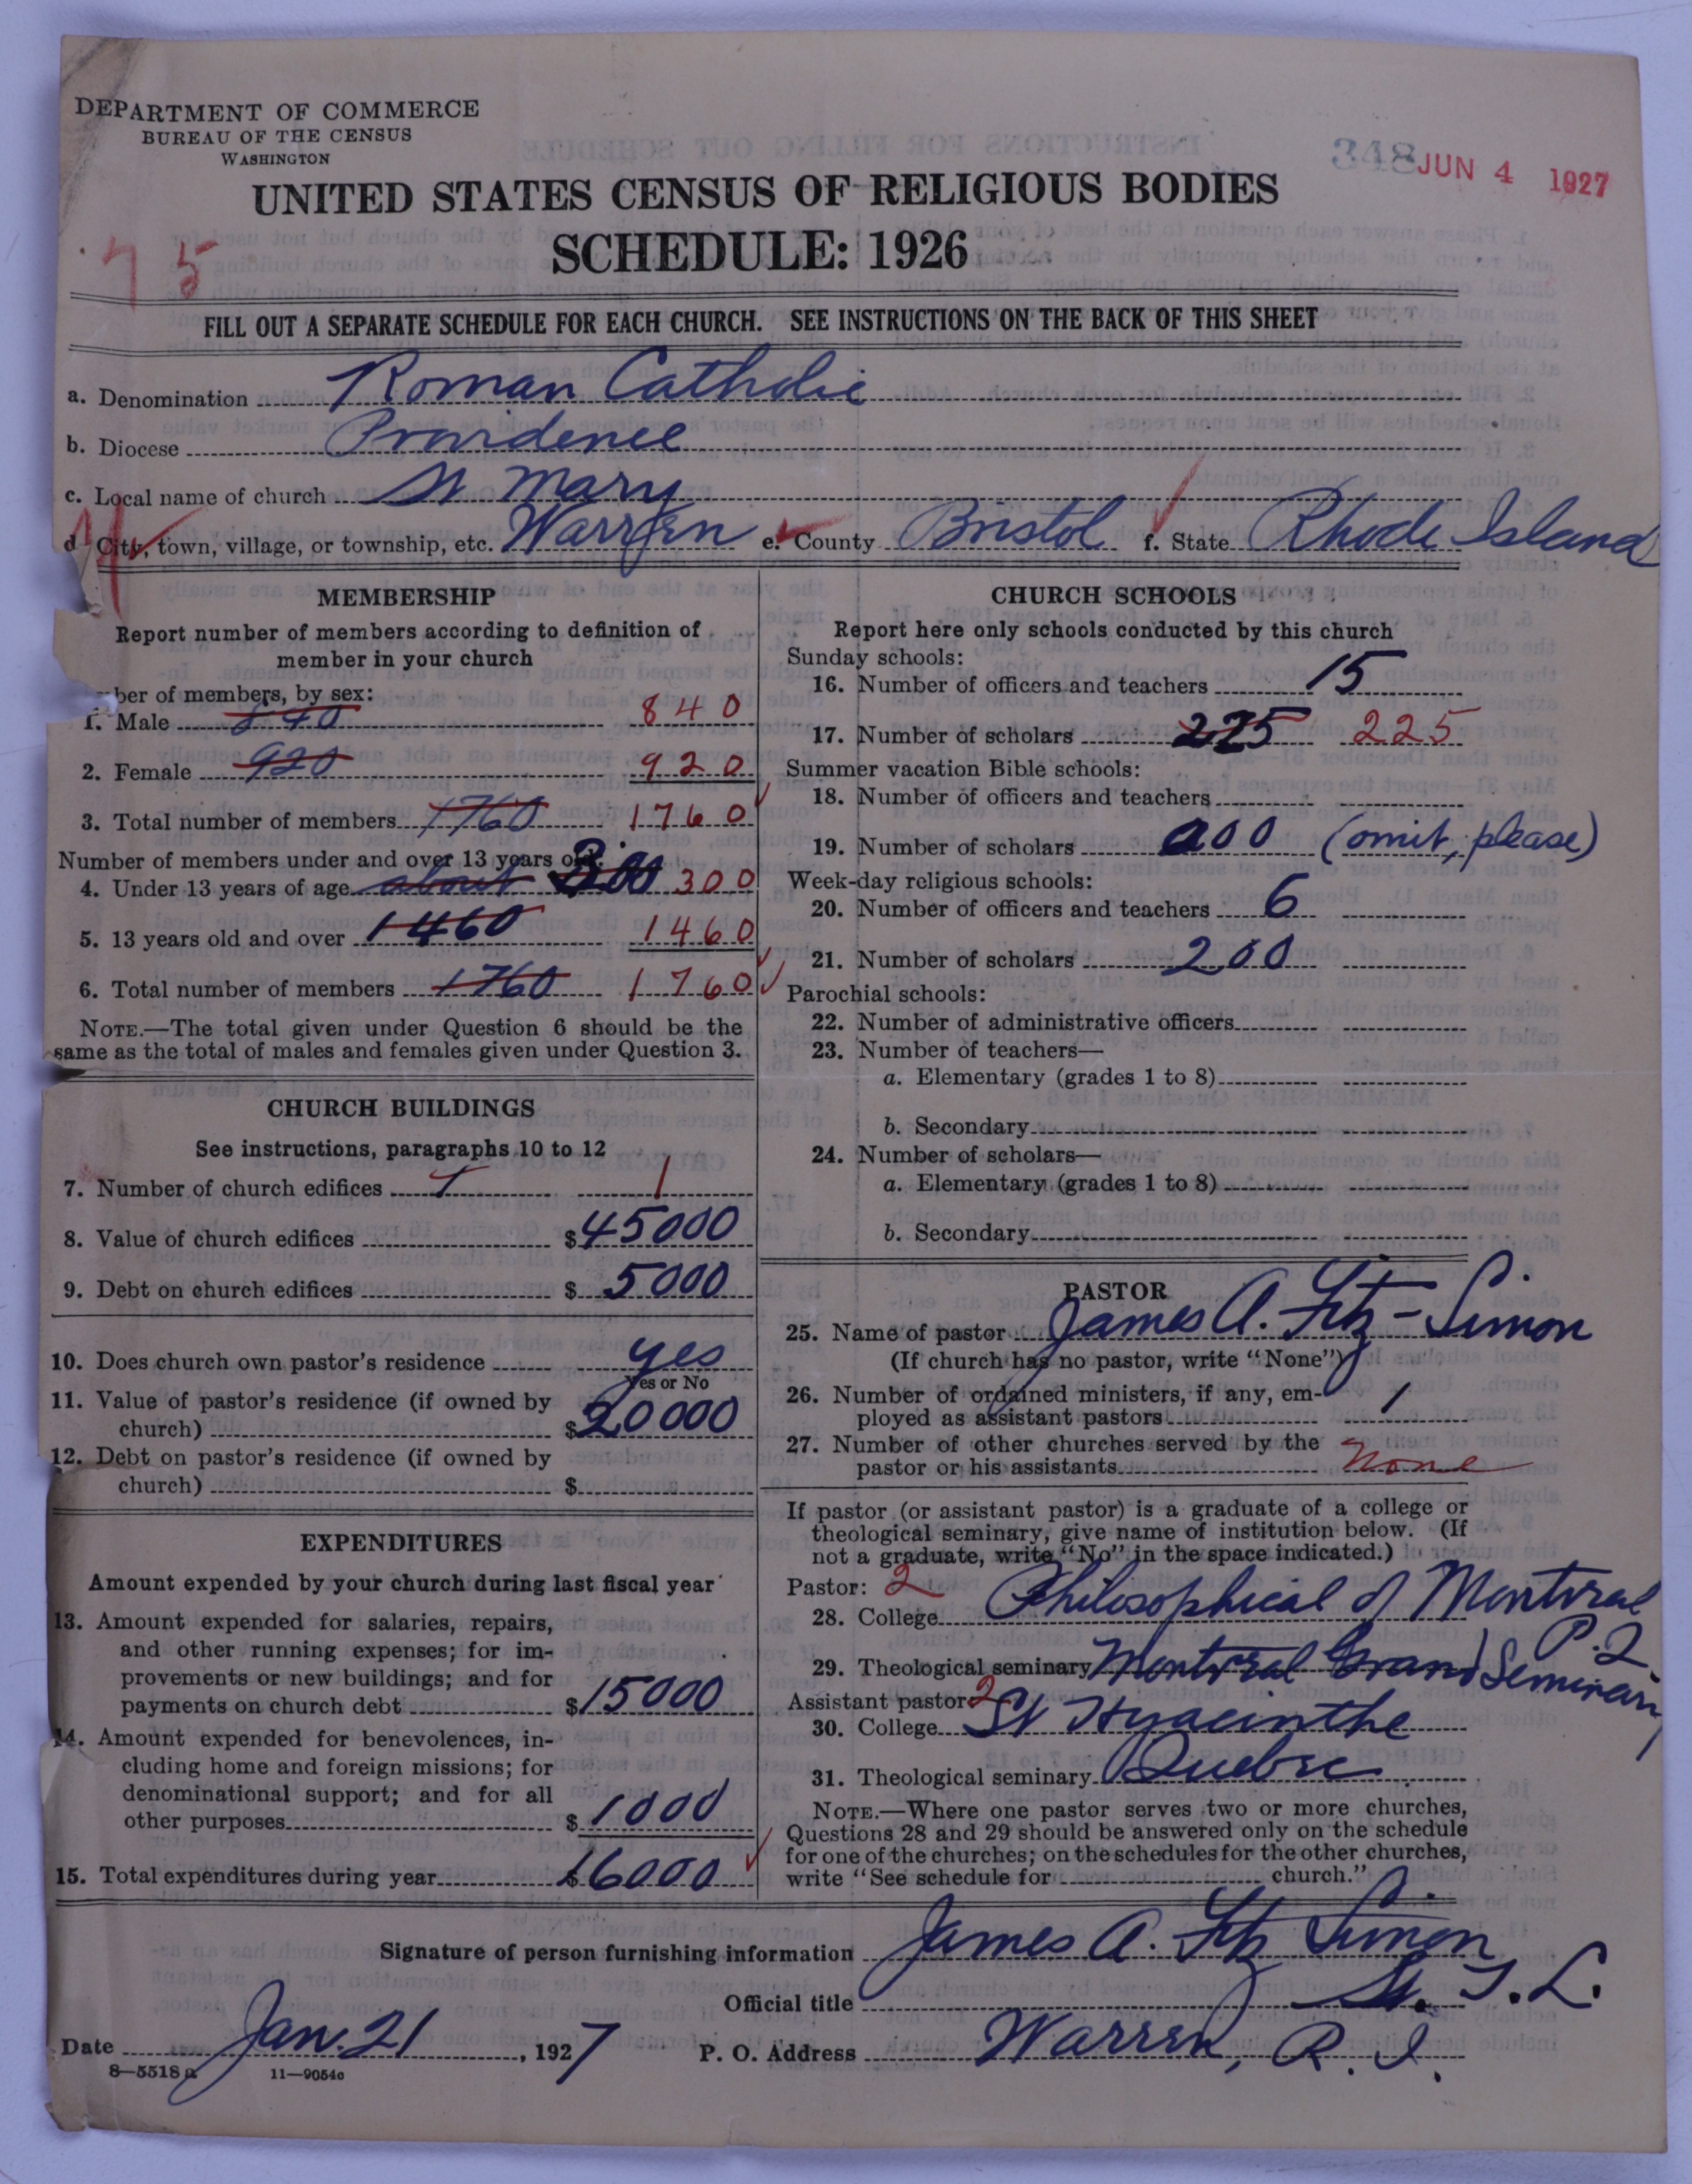 DEPARTMENT OF COMMERCE
BUREAU OF THE CENSUS
WASHINGTON
348 JUN 4 1927
UNITED STATES CENSUS OF RELIGIOUS BODIES
SCHEDULE: 1926
75
FILL OUT A SEPARATE SCHEDULE FOR EACH CHURCH. SEE INSTRUCTIONS ON THE BACK OF THIS SHEET
a. Denomination Roman Catholic
b. Diocese Providence
c. Local name of church St Mary
d City, town, village, or township, etc. Warren e. County Bristol f. State Rhode Island
MEMBERSHIP
Report number of members according to definition of
member in your church
ber of members, by sex:
1. Male 840 840
2. Female 920 920
3. Total number of members 1760 1760
Number of members under and over 13 years old:
4. Under 13 years of age about 300 300
5. 13 years old and over 1460 1460
6. Total number of members 1760 1760
NOTE.—The total given under Question 6 should be the
same as the total of males and females given under Question 3.
CHURCH BUILDINGS
See instructions, paragraphs 10 to 12
7. Number of church edifices 1 1
8. Value of church edifices $45000
9. Debt on church edifices $ 5000
10. Does church own pastor's residence yes
Yes or No
11. Value of pastor's residence (if owned by
church) $20000
12. Debt on pastor's residence (if owned by
church) $
EXPENDITURES
Amount expended by your church during last fiscal year
13. Amount expended for salaries, repairs,
and other running expenses; for im-
provements or new buildings; and for
payments on church debt $15000
14. Amount expended for benevolences, in-
cluding home and foreign missions; for
denominational support; and for all
other purposes $ 1000
15. Total expenditures during year $16000
CHURCH SCHOOLS
Report here only schools conducted by this church
Sunday schools:
16. Number of officers and teachers 15
17. Number of scholars 225 225
Summer vacation Bible schools:
18. Number of officers and teachers
19. Number of scholars 000 (omit, please)
Week-day religious schools:
20. Number of officers and teachers 6
21. Number of scholars 200
Parochial schools:
22. Number of administrative officers
23. Number of teachers—
a. Elementary (grades 1 to 8)
b. Secondary
24. Number of scholars—
a. Elementary (grades 1 to 8)
b. Secondary
PASTOR
25. Name of pastor James A. Fitz-Simon
(If church has no pastor, write "None")
26. Number of ordained ministers, if any, em-
ployed as assistant pastors 1
27. Number of other churches served by the
pastor or his assistants None
If pastor (or assistant pastor) is a graduate of a college or
theological seminary, give name of institution below. (If
not a graduate, write "No" in the space indicated.)
Pastor: 2
28. College Philosophical of Montreal
P.Q.
29. Theological seminary Montreal Grand Seminary
Assistant pastor: 2
30. College St Hyacinthe
31. Theological seminary Quebec
NOTE.—Where one pastor serves two or more churches,
Questions 28 and 29 should be answered only on the schedule
for one of the churches; on the schedules for the other churches,
write "See schedule for church."
Signature of person furnishing information James A. Fitz Simon
Official title S. T. L.
Date Jan. 21, 1927 P. O. Address Warren, R. I.
8—5518 a 11—9054c